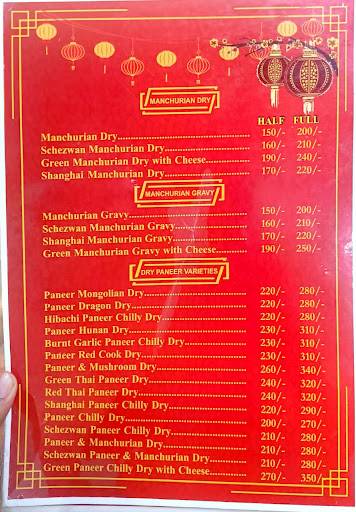 MANCHURIAN DRY
HALF FULL
Manchurian Dry 150/- 200/-
Schezwan Manchurian Dry 160/- 210/-
Green Manchurian Dry with Cheese 190/- 240/-
Shanghai Manchurian Dry 170/- 220/-
MANCHURIAN GRAVY
Manchurian Gravy 150/- 200/-
Schezwan Manchurian Gravy 160/- 210/-
Shanghai Manchurian Gravy 170/- 220/-
Green Manchurian Gravy with Cheese 190/- 250/-
DRY PANEER VARIETIES
Paneer Mongolian Dry 220/- 280/-
Paneer Dragon Dry 220/- 280/-
Hibachi Paneer Chilly Dry 220/- 280/-
Paneer Hunan Dry 230/- 310/-
Burnt Garlic Paneer Chilly Dry 230/- 310/-
Paneer Red Cook Dry 230/- 310/-
Paneer & Mushroom Dry 260/- 340/-
Green Thai Paneer Dry 240/- 320/-
Red Thai Paneer Dry 240/- 320/-
Shanghai Paneer Chilly Dry 220/- 290/-
Paneer Chilly Dry 200/- 270/-
Schezwan Paneer Chilly Dry 210/- 280/-
Paneer & Manchurian Dry 210/- 280/-
Schezwan Paneer & Manchurian Dry 210/- 280/-
Green Paneer Chilly Dry with Cheese 270/- 350/-